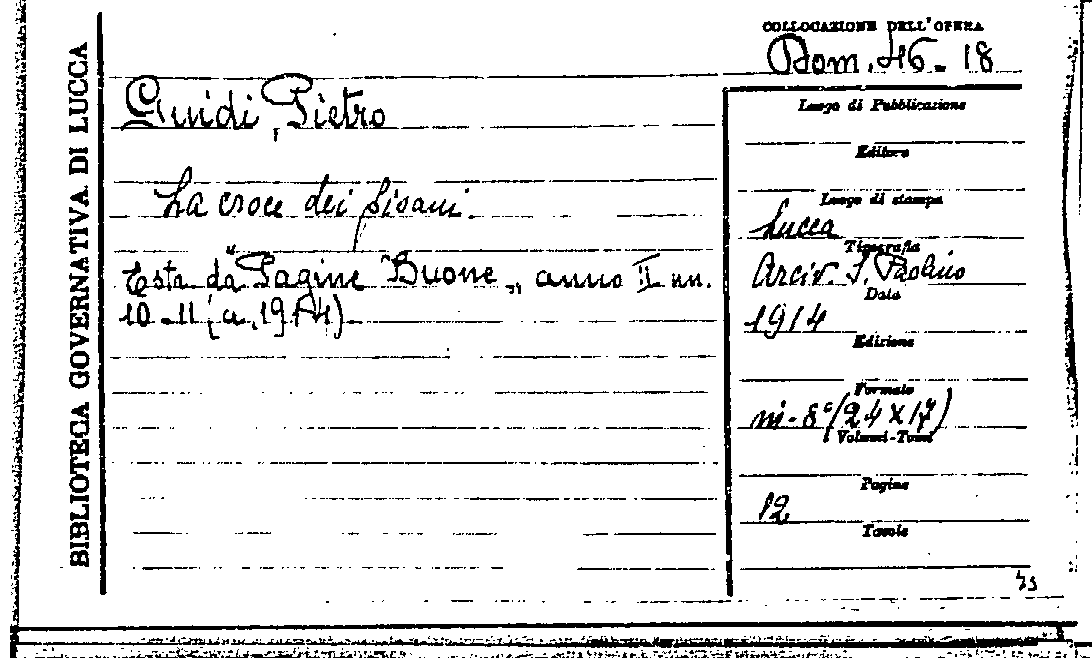 BIBLIOTECA GOVERNATIVA DI LUCCA
COLLOCAZIONE DELL'OPERA
Dom. 46 - 18
Guidi, Pietro
La croce dei pisani.
Estr. da "Pagine Buone", anno II nn.
10-11 (a. 1914).
Luogo di Pubblicazione
Editore
Luogo di stampa
Lucca
Tipografia
Arciv. S. Paolino
Data
1914
Edizione
Formato
in-8° (24 x 17)
Volumi-Tomi
Pagine
12
Tavole